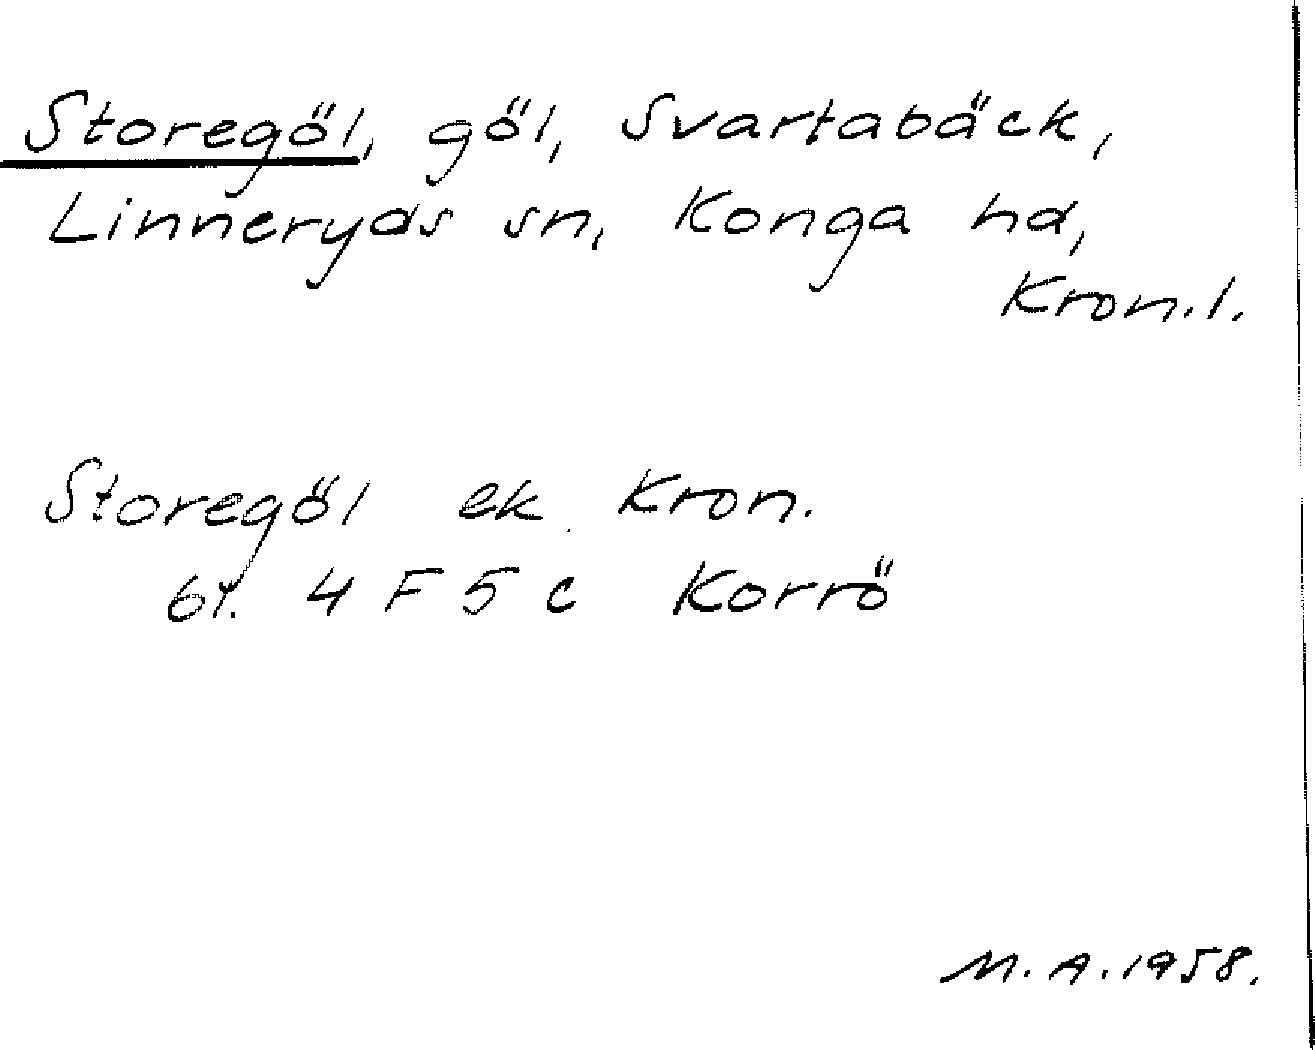 Storegöl, göl, Svartabäck,
Linneryds sn, Konga hd,
Kron. l.
Storegöl ek. Kron.
bl. 4 F 5 c Korrö
M. A. 1958.